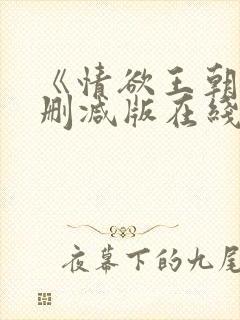 《情欲王朝
删减版在线
夜幕下的九尾